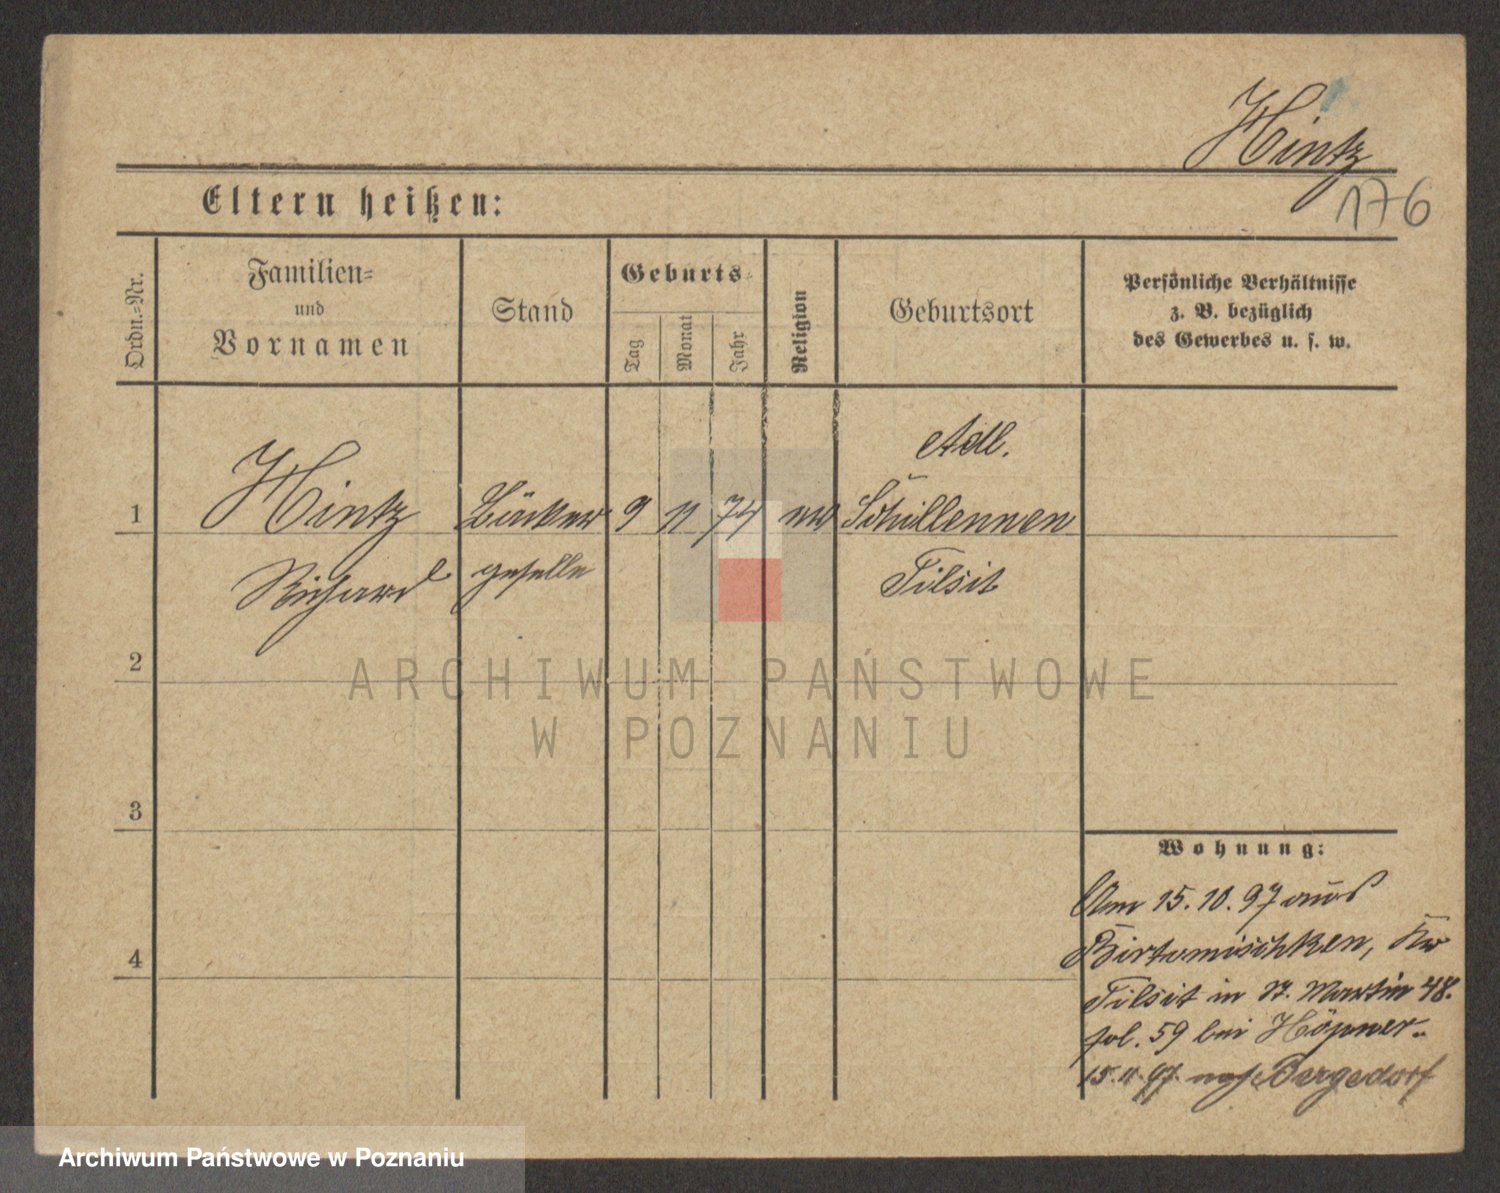 Hintz
176
Eltern heißen:
Ordn.-Nr.
Familien-
und
Vornamen
Stand
Geburts-
Tag
Monat
Jahr
Religion
Geburtsort
Persönliche Verhältnisse
z. B. bezüglich
des Gewerbes u. s. w.
Adl.
1
Hintz
Bäcker
9
11
74
ev
Schillennen
Richard
geselle
Tilsit
2
ARCHIWUM PAŃSTWOWE
W POZNANIU
3
Wohnung:
Am 15.10.97 aus
4
Birtomischken, Kr
Tilsit in St. Martin 48.
pol. 59 bei Höpner.
15.11.97 nach Bergedorf
Archiwum Państwowe w Poznaniu